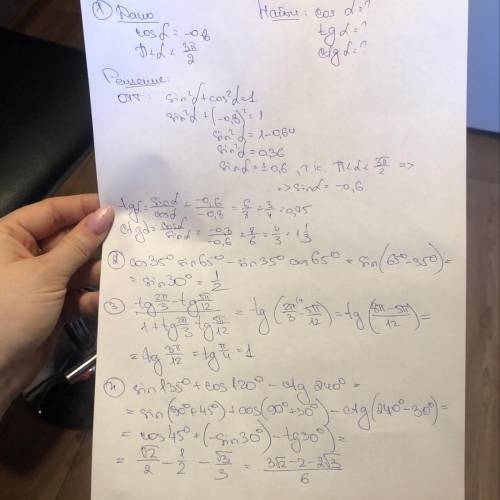 ① Дано: Найти: cos α=?
cos α = -0,8 tg α=?
π<α<3π/2 ctg α=?
Решение:
ОТТ: sin²α+cos²α=1
sin²α+(-0,8)²=1
sin²α=1-0,64
sin²α=0,36
sin α=±0,6, т.к. π<α<3π/2 =>
=> sin α= -0,6
tg α = sin α/cos α = -0,6/-0,8 = 6/8 = 3/4 = 0,75
ctg α = cos α/sin α = -0,8/-0,6 = 8/6 = 4/3 = 1 1/3
② cos35° sin65° - sin35° cos65° = sin(65°-35°)=
= sin30° = 1/2
③ (tg 2π/3 - tg 5π/12)/(1+tg 2π/3 · tg 5π/12) = tg(2π/3 ⁴ - 5π/12) = tg((8π-5π)/12)=
= tg 3π/12 = tg π/4 = 1
④ sin135°+cos120°-ctg 240°=
= sin(90°+45°)+cos(90°+30°)-ctg(240°-30°)=
= cos45°+(-sin30°)-tg30°)=
= √2/2 - 1/2 - √3/3 = (3√2-2-2√3)/6